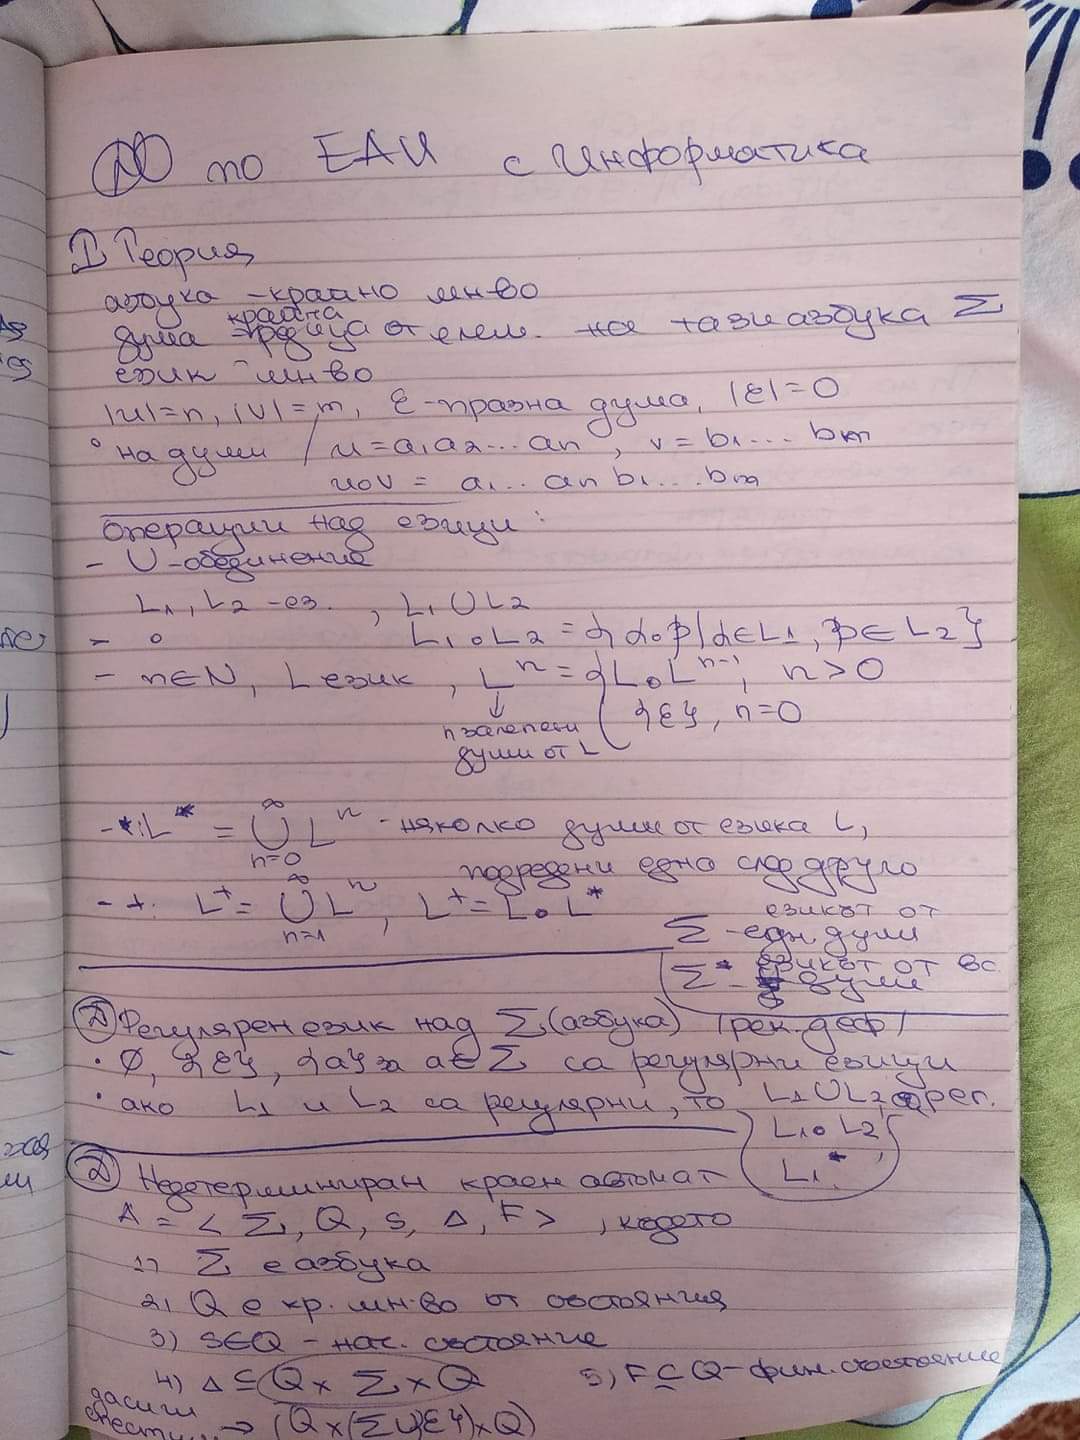 по ЕАИ с Информатика
I Теория
азбука - крайно мн-во
дума - крайна редица от елем. на тази азбука Σ
език - мн-во
|u|=n, |v|=m, ε-празна дума, |ε|=0
° на думи / u=a₁a₂...an, v=b₁...bm
u∘v = a₁...an b₁...bm
операции над езици:
- ∪-обединение
L₁, L₂ -ез., L₁∪L₂
- ∘ L₁∘L₂ = {α∘β | α∈L₁, β∈L₂}
- n∈N, L език, Lⁿ = { L∘Lⁿ⁻¹, n>0
{ε}, n=0
n залепени
думи от L
- *: L* = ∞∪n=0 Lⁿ - няколко думи от езика L,
подредени едно след друго
- +: L⁺ = ∞∪n=1 Lⁿ, L⁺=L∘L*
Σ - езикът от едн. думи
Σ* - езикът от вс. думи
Ⓓ Регулярен език над Σ (азбука) /рек. деф/
• ∅, {ε}, {a} за a∈Σ са регулярни езици
• ако L₁ и L₂ са регулярни, то L₁∪L₂, рег.
L₁∘L₂,
L₁*
Ⓓ Недетерминиран краен автомат
A = <Σ, Q, s, Δ, F>, където
1) Σ е азбука
2) Q е кр. мн-во от състояния
3) s∈Q - нач. състояние
4) Δ ⊆ Q × Σ × Q 5) F⊆Q - фин. състояние
да си
→ (Q×(Σ∪{ε})×Q)